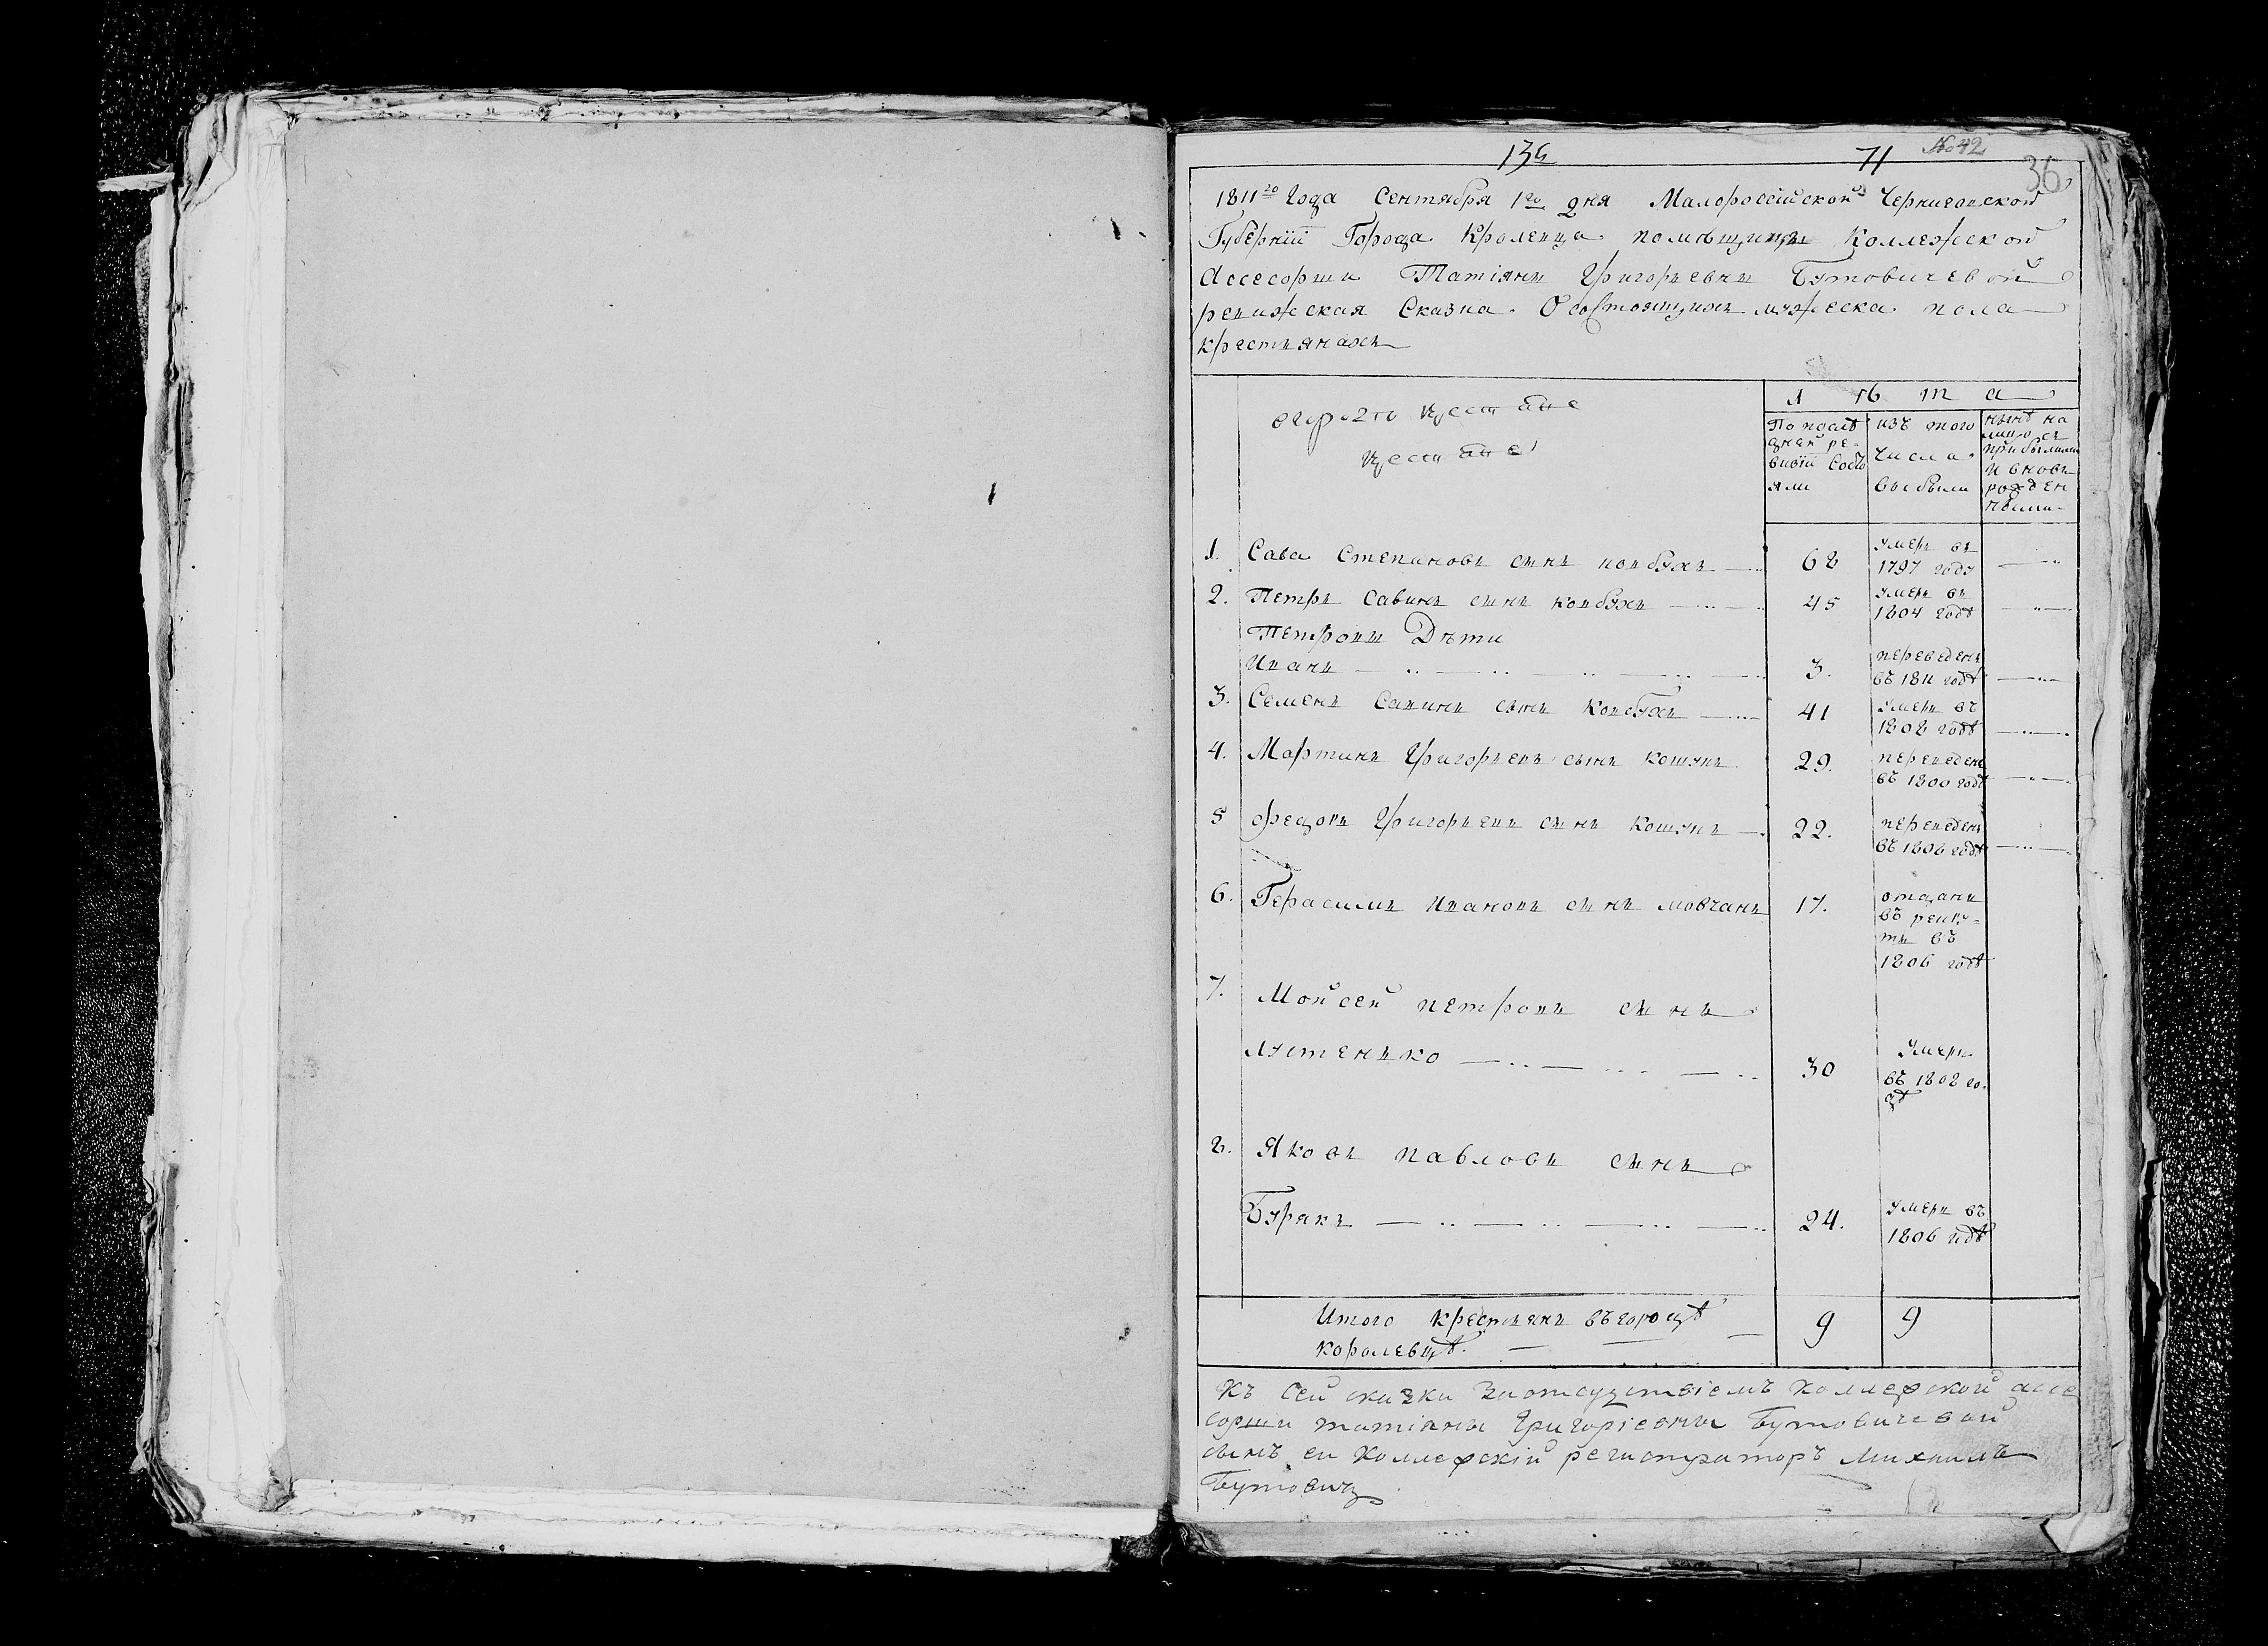 134 71 № 42 36
1811го Года Сентября 1го дня Малоросейской Черниговской
Губернии Города Кролевца помѣщицы Коллежской
Ассесорши Татіяны Григорьевны Бутовичевой
ревижская Сказка О состоящихъ мужеска пола
крестьянахъ
л ѣ т а
По послѣ
дней ре-
визіи Состо
яли
изъ того
числа
выбыли
нынѣ на
лицо съ
прибылыми
и вновь
рожден
ными
1. Сава Степановъ сынъ ковбухъ 68 умеръ въ 1797 году
2. Петръ Савинъ сынъ ковбухъ 45 умеръ въ 1804 годѣ
Петровы Дѣти
Иванъ 3. переведенъ въ 1811 годѣ
3. Семенъ Савинъ сынъ Ковбухъ 41 умеръ въ 1808 годѣ
4. Мартинъ Григорьевъ сынъ кошунъ 29. переведенъ въ 1800 годѣ
5 Федоръ Григорьевъ сынъ кошунъ 22. переведенъ въ 1808 годѣ
6. Герасимъ Ивановъ сынъ мовчанъ 17. отданъ
въ рекру-
ты въ
1806 годѣ
7. Мойсей петровъ сынъ
лустенько 30 Умеръ
въ 1808 го-
дѣ
8. Яковъ павловъ сынъ
Бурякъ 24. умеръ въ
1806 годѣ
Итого крестьянъ въ городѣ 9 9
королевцѣ.
Къ сей сказки заотсудствіемъ коллежской ассе
сорши татіяны Григоріевны Бутовичевой
сынъ ея Коллежскій регистраторъ Михаилъ
Бутовичъ